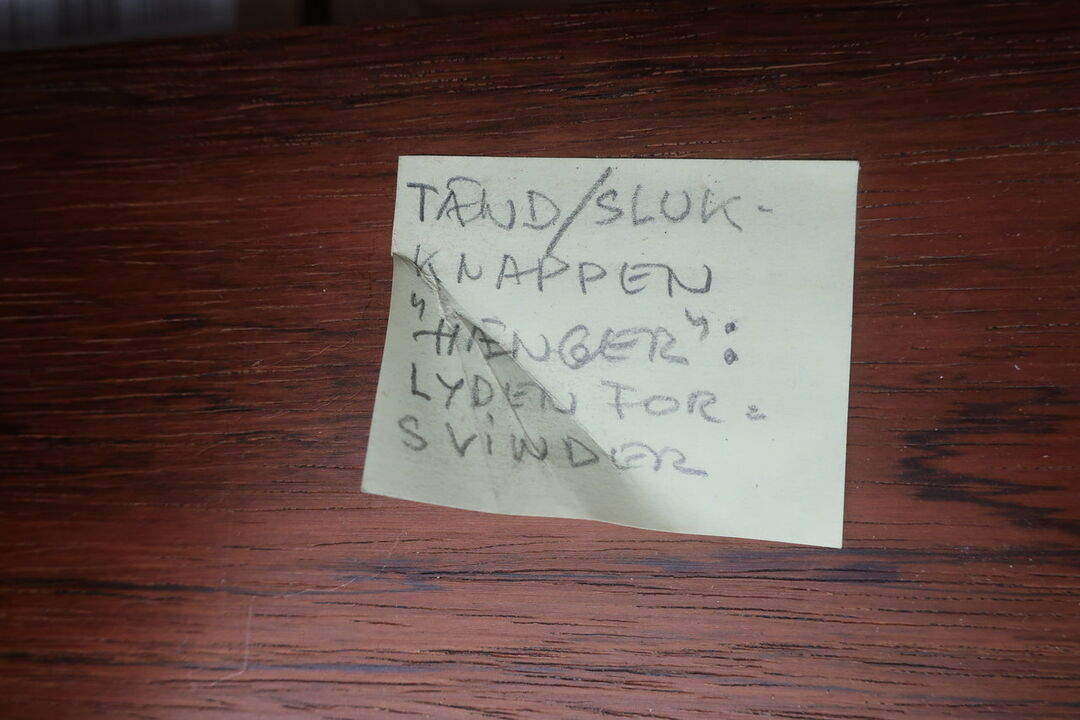 TÆND/SLUK-
KNAPPEN
"HÆNGER":
LYDEN FOR=
SVINDER